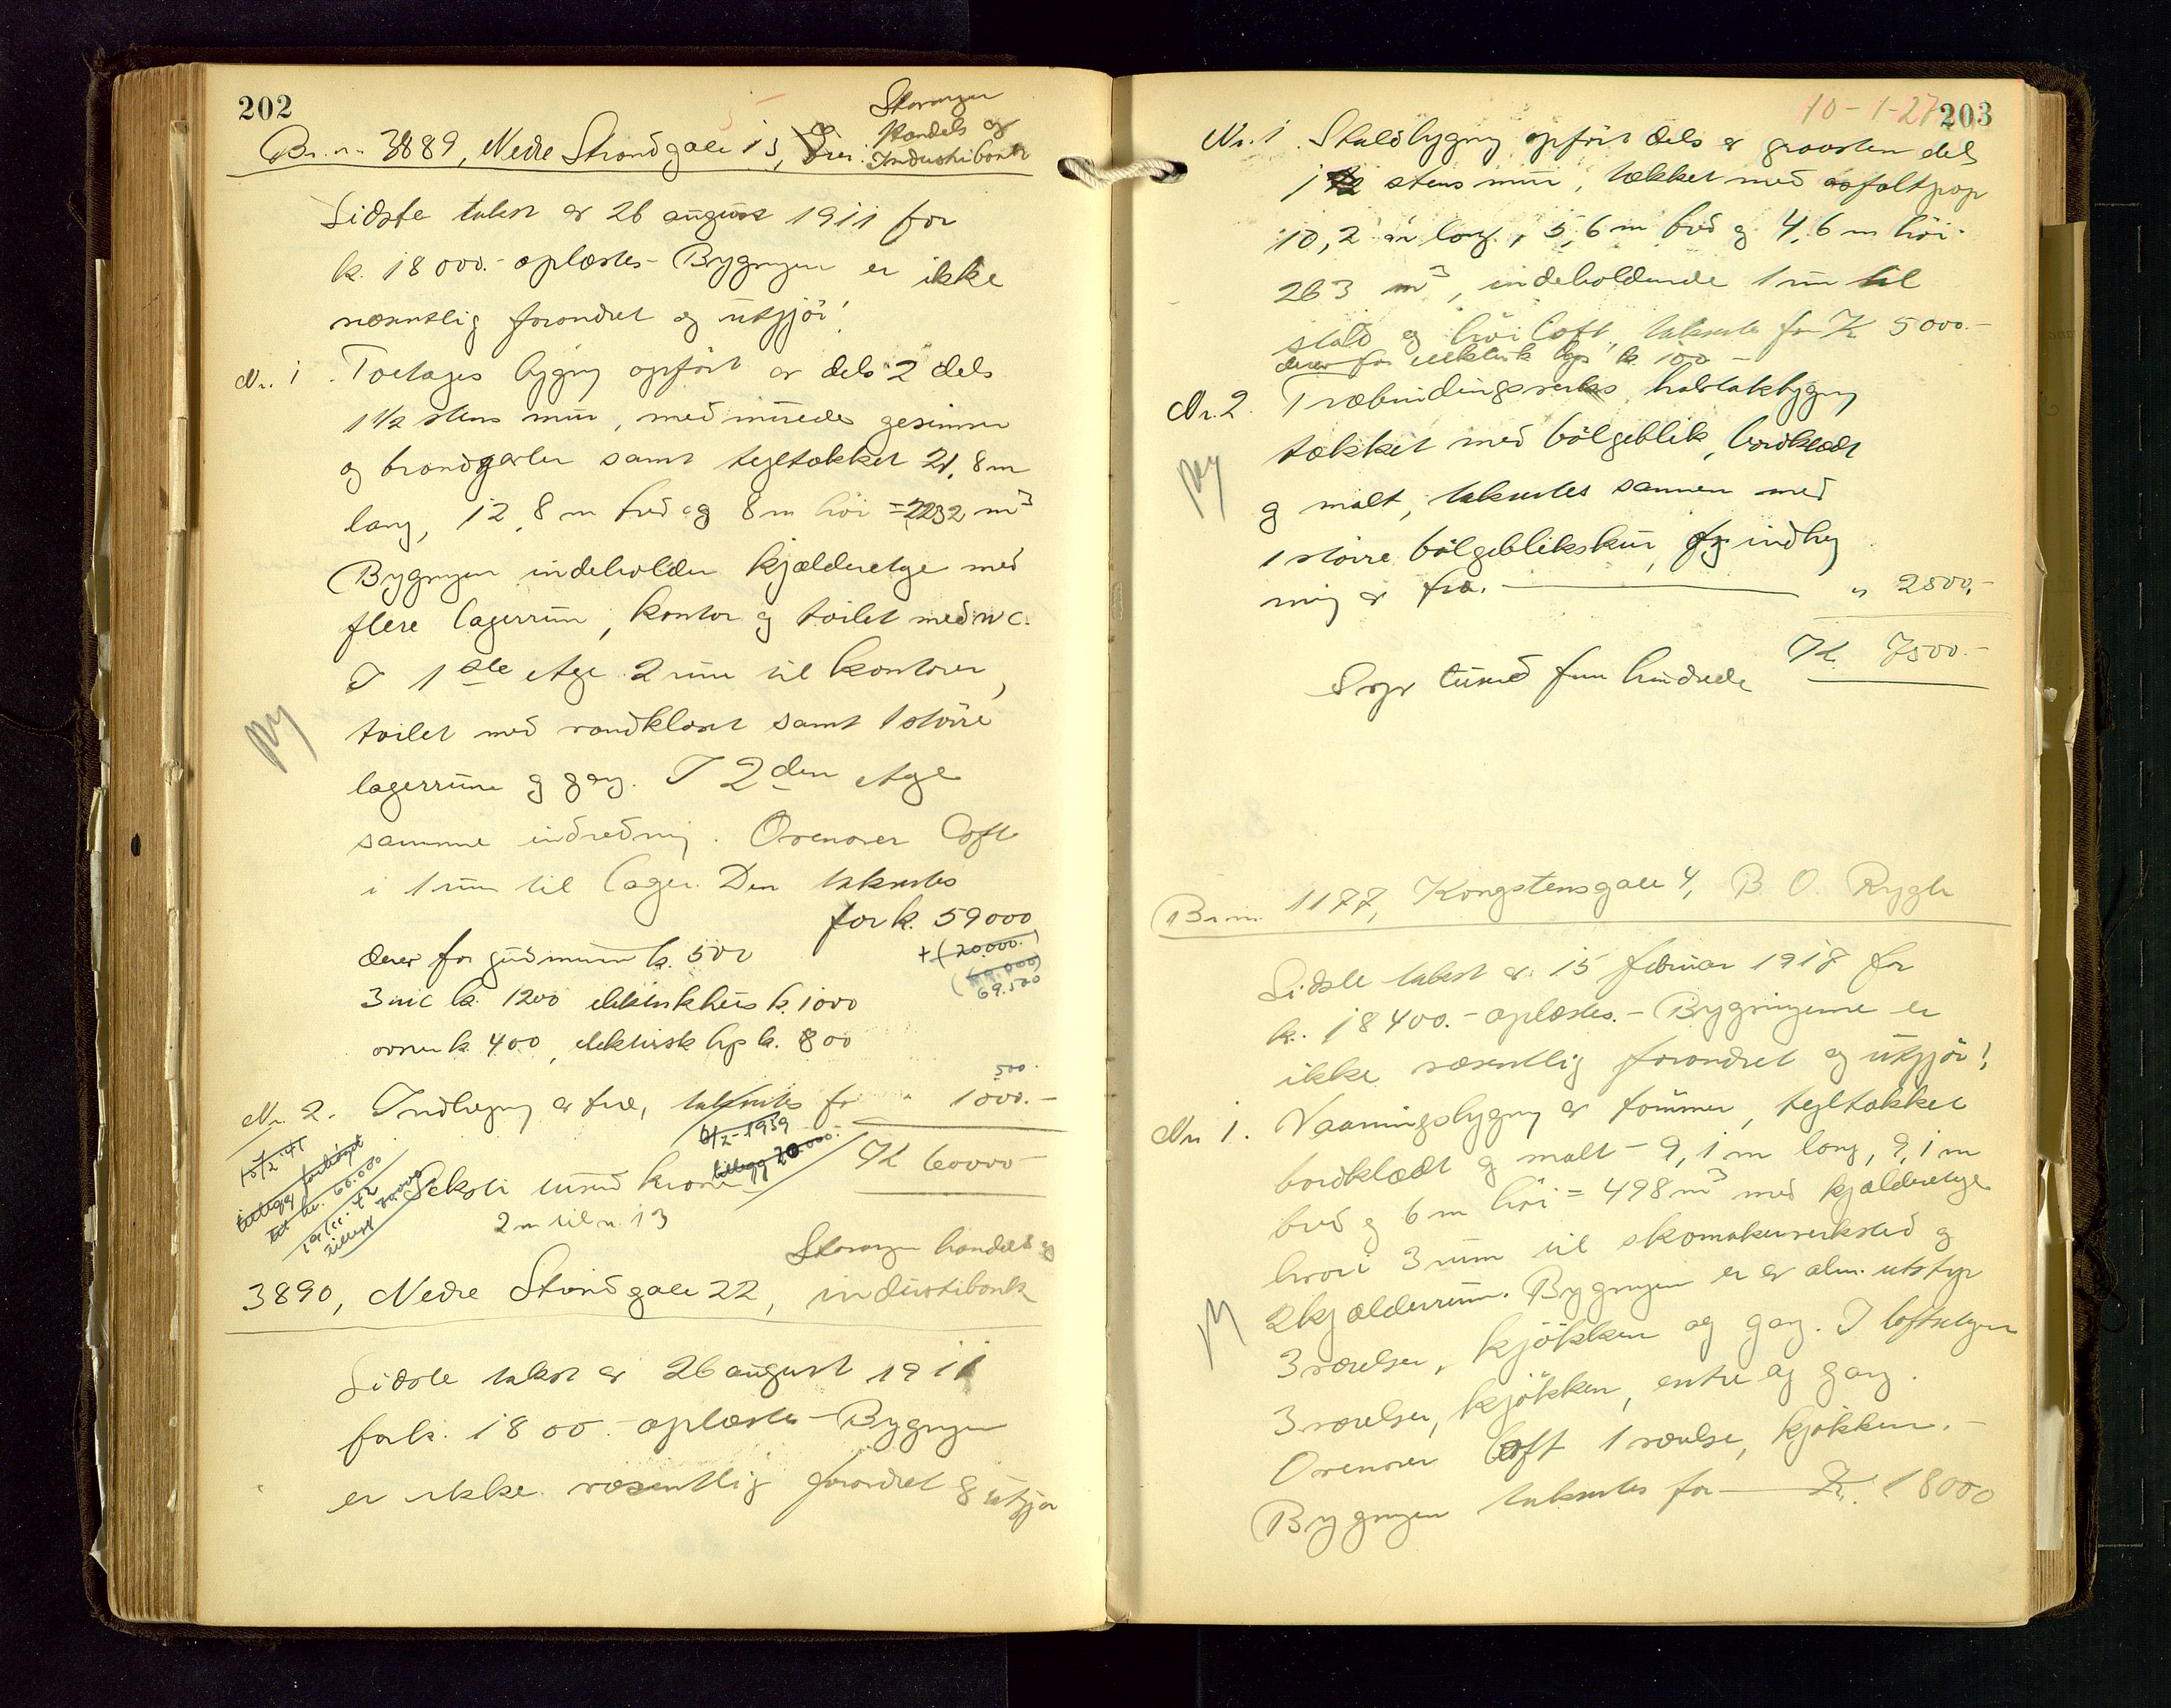 202
Br. n. 3889, Nedre Strandgate 15, Stavanger
Handels og
Industribank
Sidste takst er 26 august 1911 for
k. 18000.- oplæstes - Bygningen er ikke
væsentlig forandret og utgjör!
Nr. 1. Toetages bygng opfört er dels 2 dels
1 1/2 stens mur, med murede gesimser
og brandgavler samt tegltækket 21,8 m
lang, 12,8 m bred og 8 m höi = 2232 m³
Bygningen indeholder kjælderetge med
flere lagerrum, kontor og toilet med wc.
I 1ste etge 2 rum til kontorer,
toilet med vandklosr samt 1 större
lagerrum og gang. I 2den etge
samme indredning. Ovenover loft
i 1 rum til lager. Den takseres
for k. 59000
derav for grundmuren k. 500
+ (20.000.)
(60.000)
69.500
3 wc k. 1200 elektrikheis k. 1000
ovner k. 400, elektrisk lys k. 800
500.
Nr. 2. Indhegng er træ, takseres for " 1000.-
6/2-1939
tillegg 20000.-
K 60000-
15/2-41
tillegg forhöget
til kr. 60.000
19/11-42
tillegg 70.000
Seksti tusind kroner
2 m til n. 13
3890, Nedre Strandgate 22, Stavanger handels og
industribank
Sidste takst er 26 august 1911
for k. 1800.- oplæstes - Bygningen
er ikke væsentlig forandret & utgjør
10-1-27 203
Nr. 1. Staldbygng opfört dels er graasten dels
1 stens mur, tækket med asfaltpap
10,2 m lang, 5,6 m bred og 4,6 m höi -
263 m³, indeholdende 1 rum til
stald og höiloft, takseres for K 5000.-
derav for elektrisk lys k. 100 -
Nr. 2. Træbindingsverks halvtakbygng
tækket med bölgeblik, bordklædt
og malt, takseres sammen med
1 större bölgeblikskur, og indheg
ning er træ. " 2500,-
K. 7500.-
Syv tusind fem hundrede
Br. nr. 1177, Kongstensgate 4, B. O. Rygh
Sidste takst er 15 februar 1918 for
k. 18400.- oplæstes. - Bygningerne er
ikke væsentlig forandret og utgjör!
Nr. 1. Vaaningsbygng er tömmer, tegltækket
bordklædt og malt - 9,1 m lang, 9,1 m
bred og 6 m höi = 498 m³ med kjælderetge
hvori 3 rum til skomakerverksted og
2 kjælderrum. Bygningen er er alm. utstyr
3 værelser, kjökken og gang. I loftsetgen
3 værelser, kjökken, entre og gang.
Ovenover loft 1 værelse, kjökken. -
Bygningen takseres for K. 18000